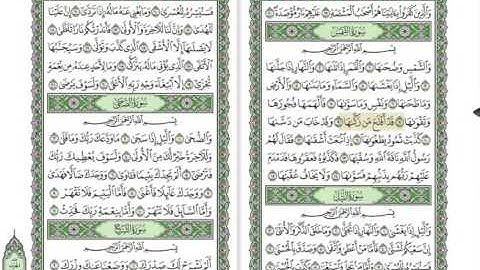 وَالَّذِينَ كَفَرُوا بِآيَاتِنَا هُمْ أَصْحَابُ الْمَشْأَمَةِ ١٩ عَلَيْهِمْ نَارٌ مُّؤْصَدَةٌ ٢٠
سُورَةُ الشَّمْسِ
بِسْمِ اللَّهِ الرَّحْمَٰنِ الرَّحِيمِ
وَالشَّمْسِ وَضُحَاهَا ١ وَالْقَمَرِ إِذَا تَلَاهَا ٢ وَالنَّهَارِ
إِذَا جَلَّاهَا ٣ وَاللَّيْلِ إِذَا يَغْشَاهَا ٤ وَالسَّمَاءِ وَمَا بَنَاهَا ٥ وَالْأَرْضِ
وَمَا طَحَاهَا ٦ وَنَفْسٍ وَمَا سَوَّاهَا ٧ فَأَلْهَمَهَا فُجُورَهَا
وَتَقْوَاهَا ٨ قَدْ أَفْلَحَ مَن زَكَّاهَا ٩ وَقَدْ خَابَ مَن دَسَّاهَا
١٠ كَذَّبَتْ ثَمُودُ بِطَغْوَاهَا ١١ إِذِ انبَعَثَ أَشْقَاهَا ١٢ فَقَالَ لَهُمْ
رَسُولُ اللَّهِ نَاقَةَ اللَّهِ وَسُقْيَاهَا ١٣ فَكَذَّبُوهُ فَعَقَرُوهَا فَدَمْدَمَ
عَلَيْهِمْ رَبُّهُم بِذَنبِهِمْ فَسَوَّاهَا ١٤ وَلَا يَخَافُ عُقْبَاهَا ١٥
سُورَةُ اللَّيْلِ
بِسْمِ اللَّهِ الرَّحْمَٰنِ الرَّحِيمِ
وَاللَّيْلِ إِذَا يَغْشَىٰ ١ وَالنَّهَارِ إِذَا تَجَلَّىٰ ٢ وَمَا خَلَقَ الذَّكَرَ وَالْأُنثَىٰ ٣
إِنَّ سَعْيَكُمْ لَشَتَّىٰ ٤ فَأَمَّا مَنْ أَعْطَىٰ وَاتَّقَىٰ ٥ وَصَدَّقَ بِالْحُسْنَىٰ
فَسَنُيَسِّرُهُ لِلْعُسْرَىٰ ١٠ وَمَا يُغْنِي عَنْهُ مَالُهُ إِذَا تَرَدَّىٰ ١١ إِنَّ عَلَيْنَا
لَلْهُدَىٰ ١٢ وَإِنَّ لَنَا لَلْآخِرَةَ وَالْأُولَىٰ ١٣ فَأَنذَرْتُكُمْ نَارًا تَلَظَّىٰ ١٤
لَا يَصْلَاهَا إِلَّا الْأَشْقَى ١٥ الَّذِي كَذَّبَ وَتَوَلَّىٰ ١٦ وَسَيُجَنَّبُهَا
الْأَتْقَى ١٧ الَّذِي يُؤْتِي مَالَهُ يَتَزَكَّىٰ ١٨ وَمَا لِأَحَدٍ عِندَهُ مِن نِّعْمَةٍ
تُجْزَىٰ ١٩ إِلَّا ابْتِغَاءَ وَجْهِ رَبِّهِ الْأَعْلَىٰ ٢٠ وَلَسَوْفَ يَرْضَىٰ ٢١
سُورَةُ الضُّحَىٰ
بِسْمِ اللَّهِ الرَّحْمَٰنِ الرَّحِيمِ
وَالضُّحَىٰ ١ وَاللَّيْلِ إِذَا سَجَىٰ ٢ مَا وَدَّعَكَ رَبُّكَ وَمَا قَلَىٰ ٣
وَلَلْآخِرَةُ خَيْرٌ لَّكَ مِنَ الْأُولَىٰ ٤ وَلَسَوْفَ يُعْطِيكَ رَبُّكَ
فَتَرْضَىٰ ٥ أَلَمْ يَجِدْكَ يَتِيمًا فَآوَىٰ ٦ وَوَجَدَكَ ضَالًّا فَهَدَىٰ
٧ وَوَجَدَكَ عَائِلًا فَأَغْنَىٰ ٨ فَأَمَّا الْيَتِيمَ فَلَا تَقْهَرْ
٩ وَأَمَّا السَّائِلَ فَلَا تَنْهَرْ ١٠ وَأَمَّا بِنِعْمَةِ رَبِّكَ فَحَدِّثْ ١١
سُورَةُ الشَّرْحِ
بِسْمِ اللَّهِ الرَّحْمَٰنِ الرَّحِيمِ
أَلَمْ نَشْرَحْ لَكَ صَدْرَكَ ١ وَوَضَعْنَا عَنكَ وِزْرَكَ ٢